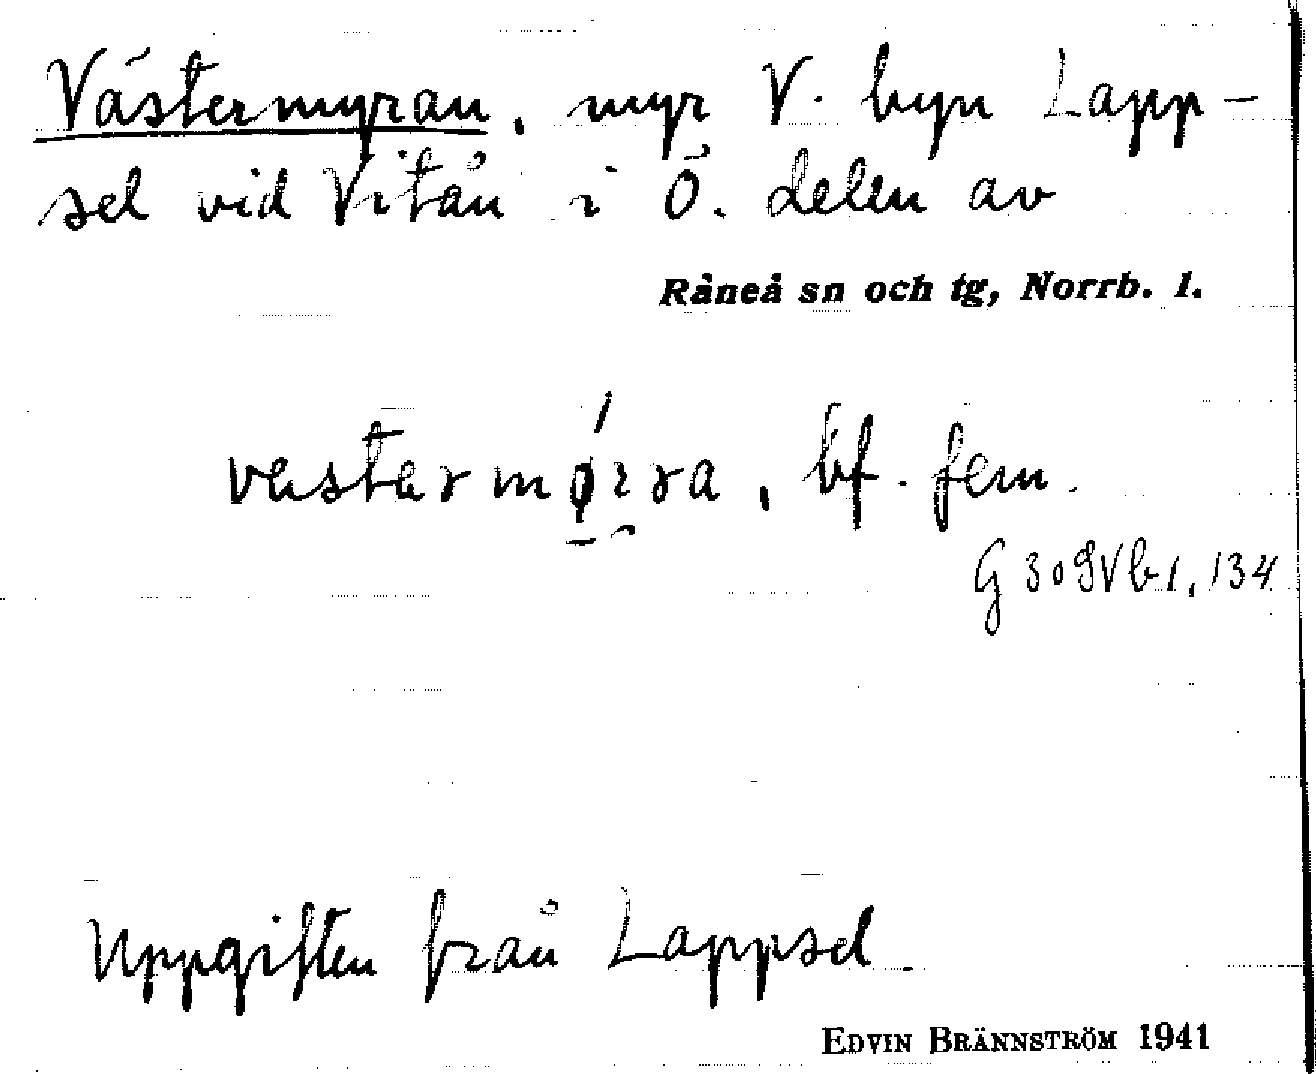 Västermyran, myr V. byn Lapp-
sel vid Vitån i Ö. delen av
Råneå sn och tg, Norrb. l.
bf. fem.
G 309Vb1, 134
Uppgiften från Lappsel
EDVIN BRÄNNSTRÖM 1941